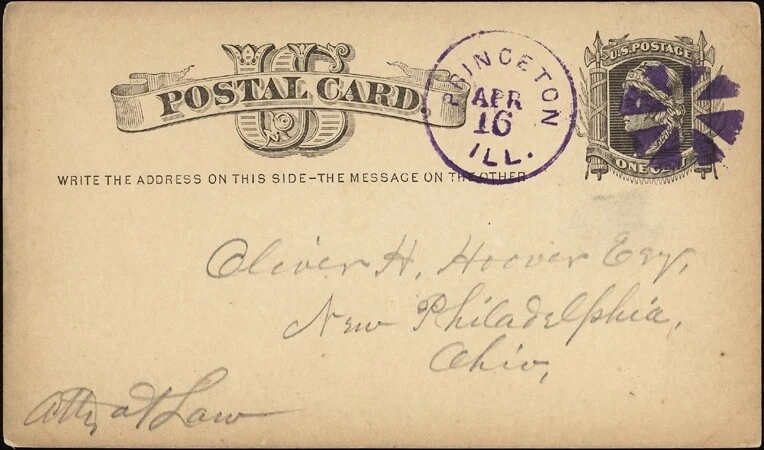 US
POSTAL CARD.
WRITE THE ADDRESS ON THIS SIDE–THE MESSAGE ON THE OTHER
PRINCETON
APR
16
ILL.
U.S. POSTAGE
ONE CENT
Oliver H. Hoover Esq,
New Philadelphia,
Ohio,
Atty at Law